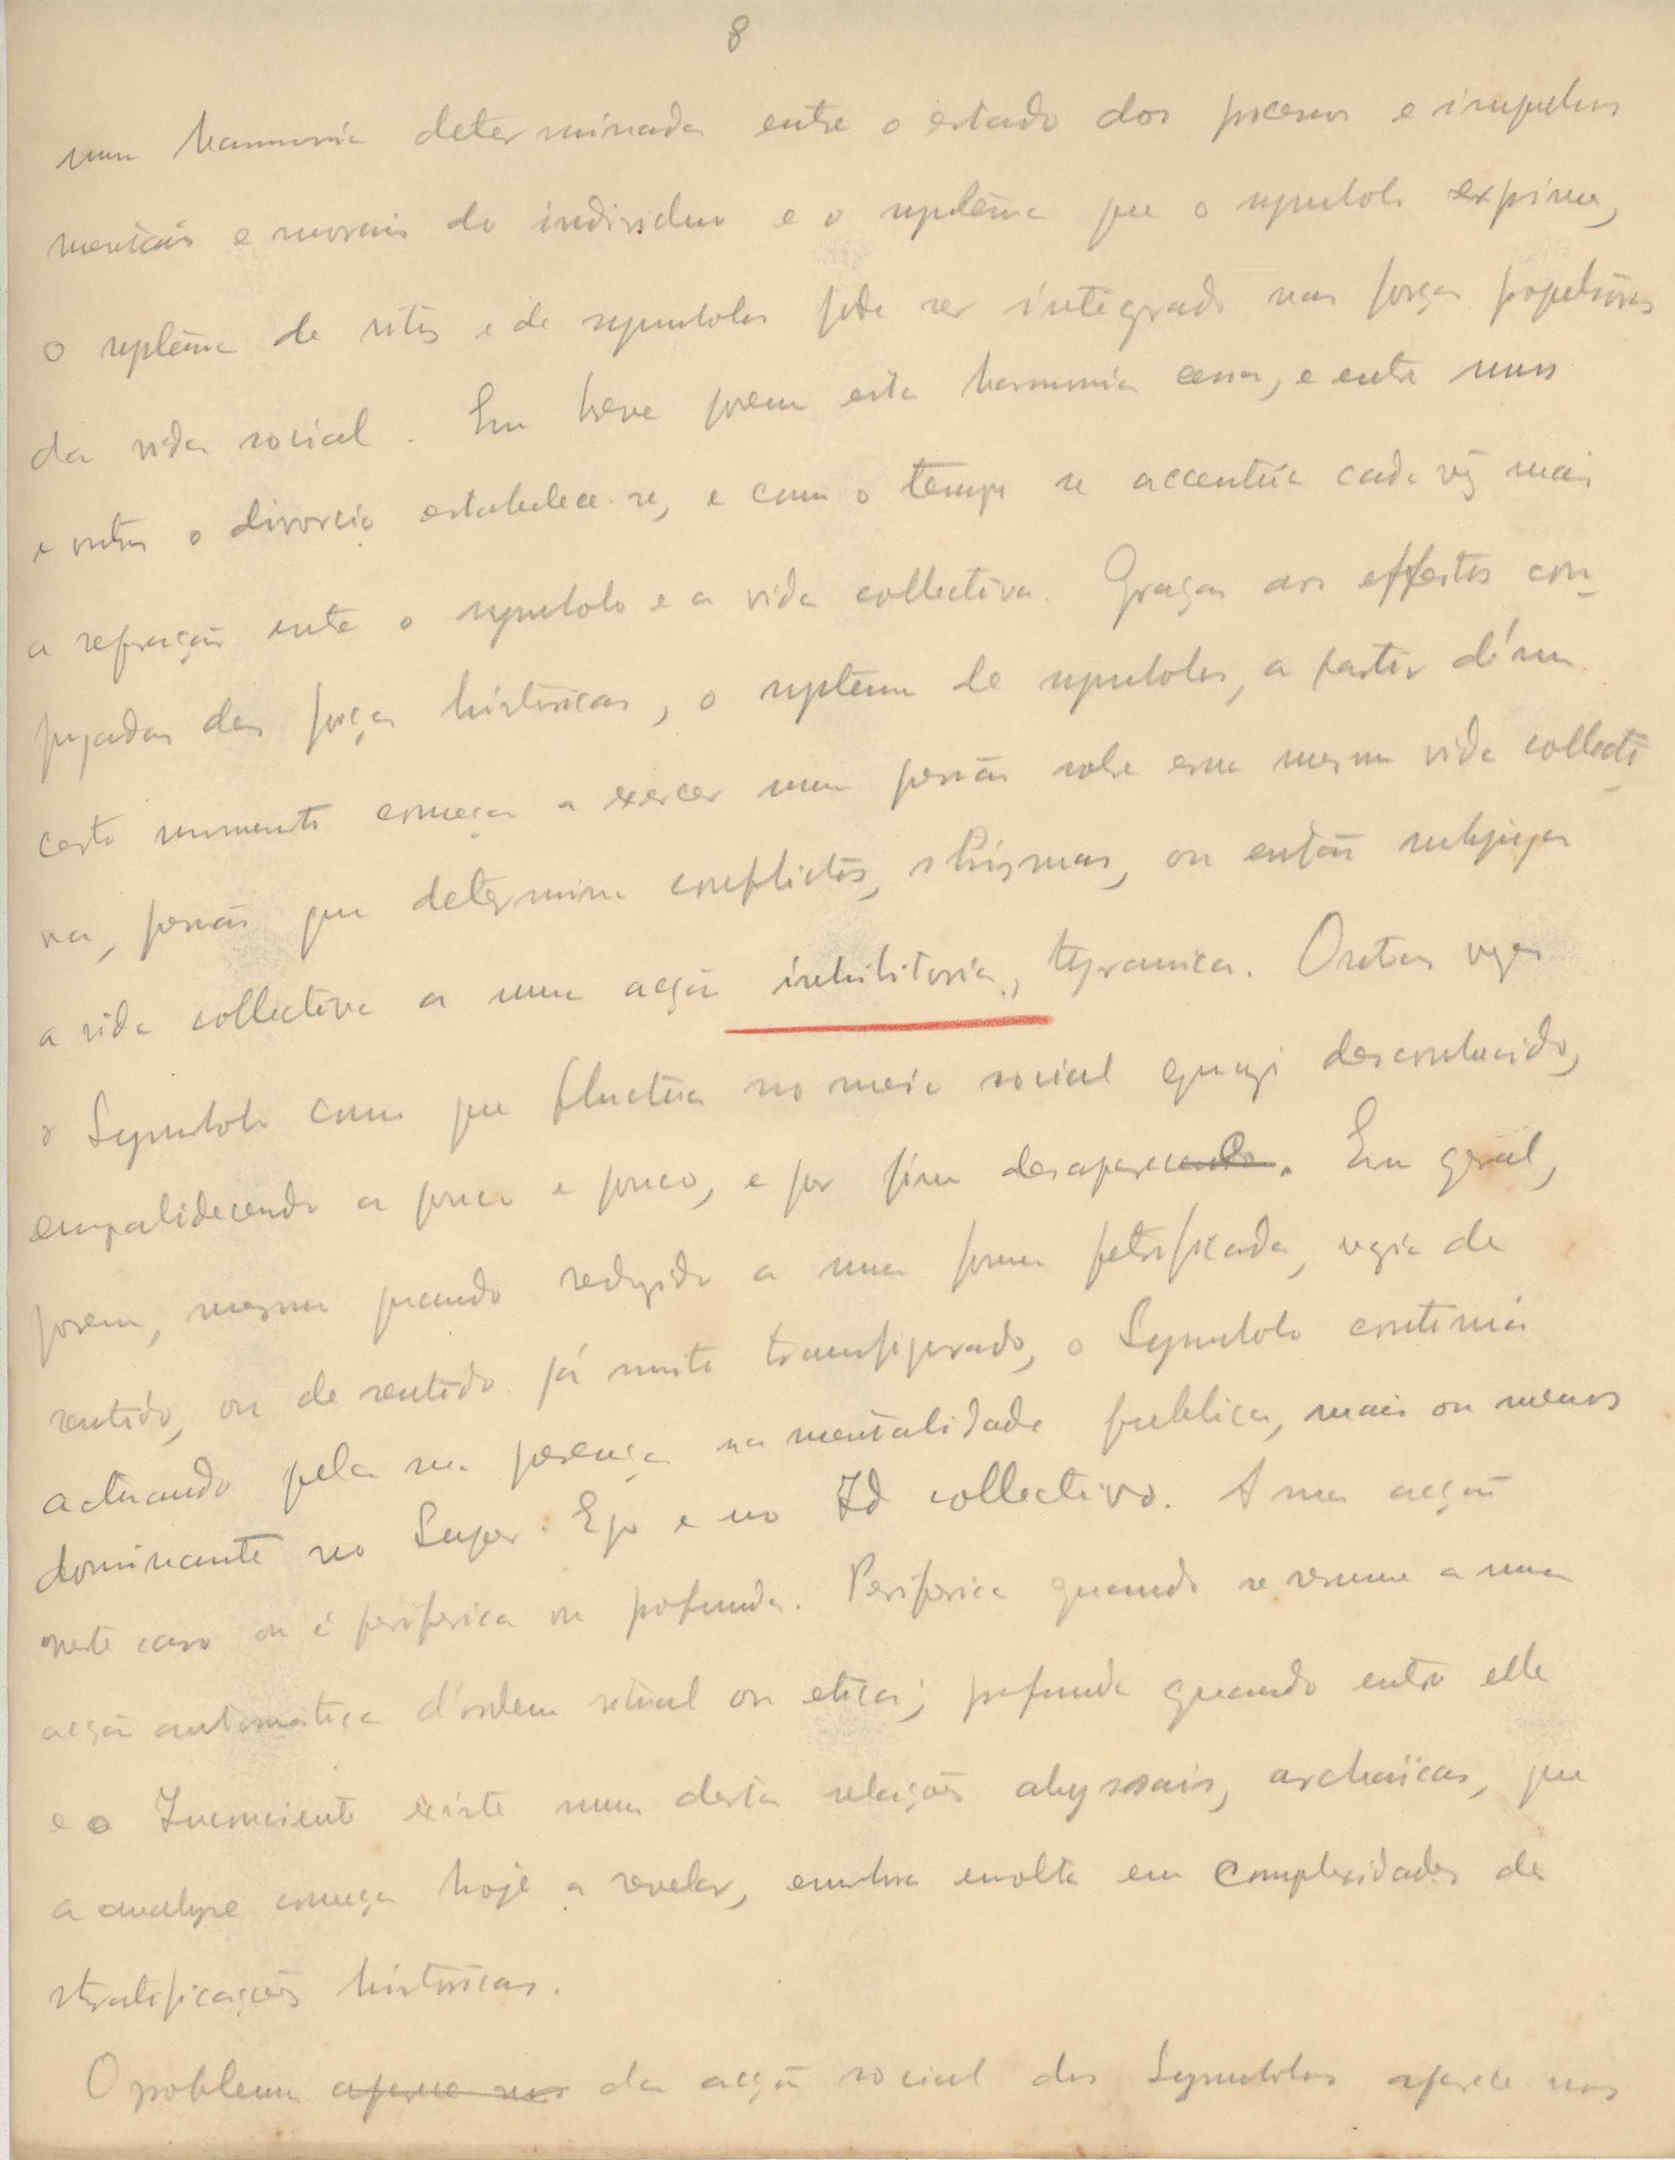 8
uma harmonia determinada entre o estado dos processos e impulsos
mentais e morais do individuo e o systema que o symbolo exprime,
o systema de ritos e de symbolos póde ser integrado nas forças propulsoras
da vida social. Em breve porem esta harmonia cessa, e entre uns
e outros o divorcio estabelece-se, e com o tempo se accentúa cada vez mais
a refracção entre o symbolo e a vida collectiva. Graças aos effeitos con-
jugados das forças historicas, o systema de symbolos, a partir d'um
certo momento começa a exercer uma pressão sobre essa mesma vida collecti-
va, pressão que determina conflictos, schismas, ou então subjuga
a vida collectiva a uma acção inhibitoria, tyranica. Outras vezes
o Symbolo como que fluctúa no meio social quazi desconhecido,
empalidecendo a pouco e pouco, e por fim desaparecendo. Em geral,
porem, mesmo quando reduzido a uma forma petrificada, vazia de
sentido, ou de sentido já muito transfigurado, o Symbolo continúa
actuando pela sua presença na mentalidade publica, mais ou menos
dominante no Super-Ego e no Id collectivo. A sua acção
neste caso ou é periferica ou profunda. Periferica quando se resume a uma
acção automatica d'ordem ritual ou etica; profunda quando entre elle
e o Inconsciente existe uma destas relações abyssais, archaïcas, que
a analyse começa hoje a revelar, embora envolta em complexidades de
stratificações historicas.
O problema aparece nos da acção social dos Symbolos aparece nos